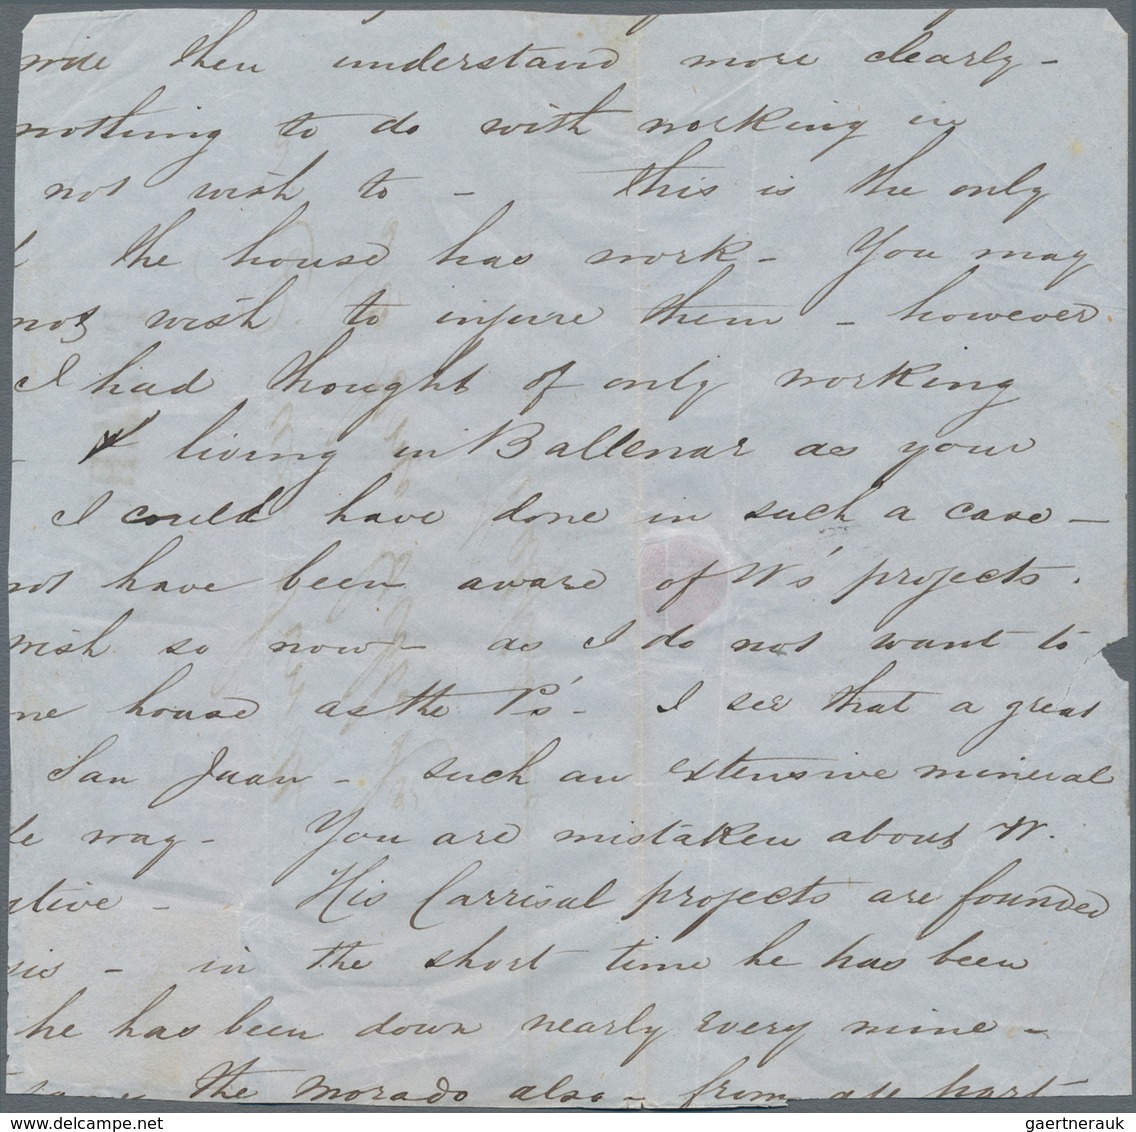 then understand more clearly -
nothing to do with working in
not wish to - this is the only
the house has work - You may
not wish to injure them - however
I had thought of only working
- & living in Ballenar as your
I could have done in such a case -
not have been aware of W's projects.
wish so now - as I do not want to
house as the P's - I see that a great
San Juan - such an extensive mineral
way - You are mistaken about W.
ative - His Carrisal projects are founded
sis - in the short time he has been
he has been down nearly every mine -
the Morado also - from all part
gaertnerauk